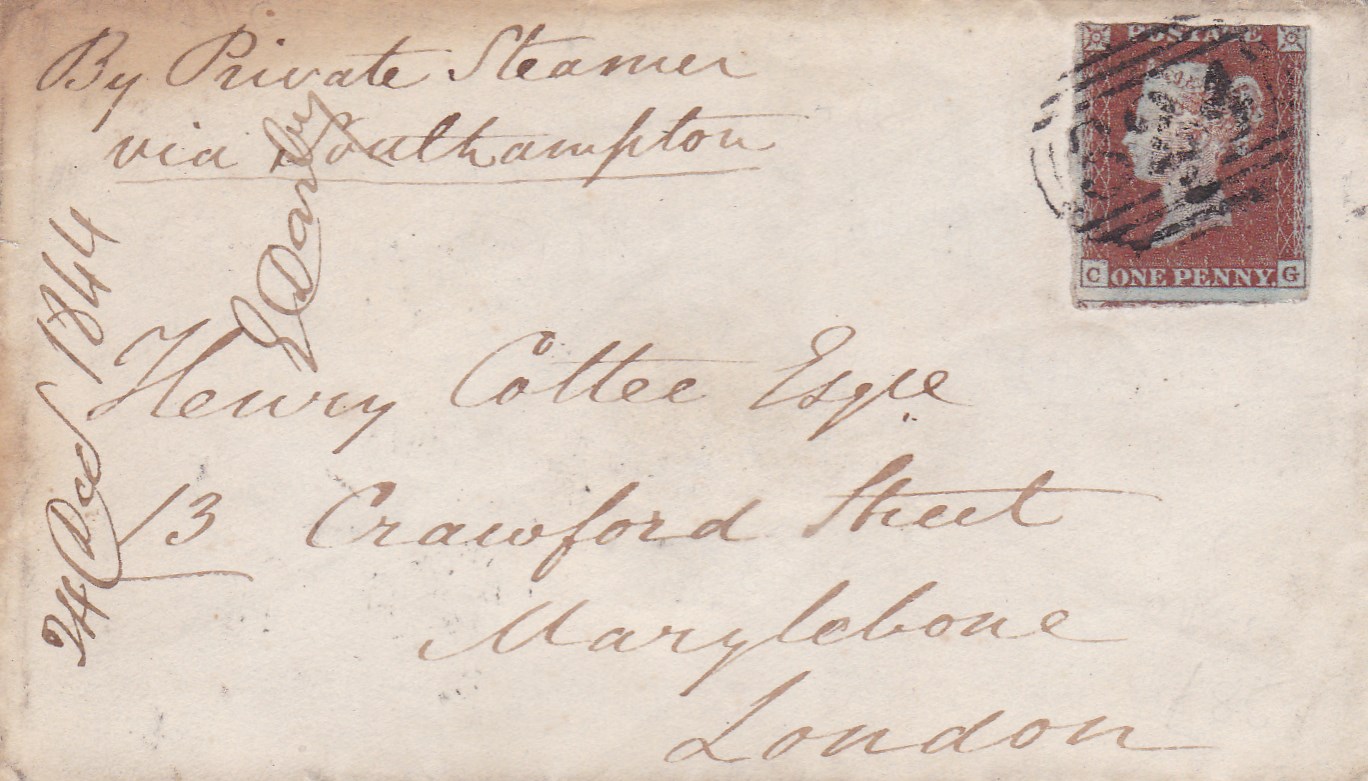 By Private Steamer
via Southampton
POSTAGE
C ONE PENNY. G
E Darby
24 Dec 1844
Henry Cottee Esqre
13 Crawford Street
Marylebone
London